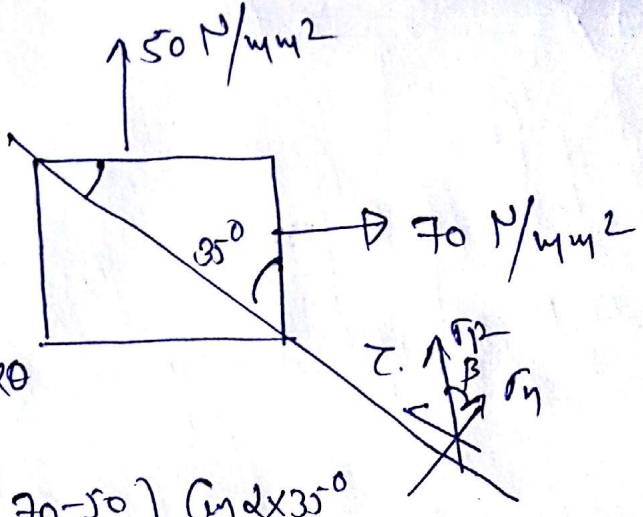 50 N/mm²
35⁰
70 N/mm²
τ.
β
σn
2θ
70-50) Cos 2×35⁰